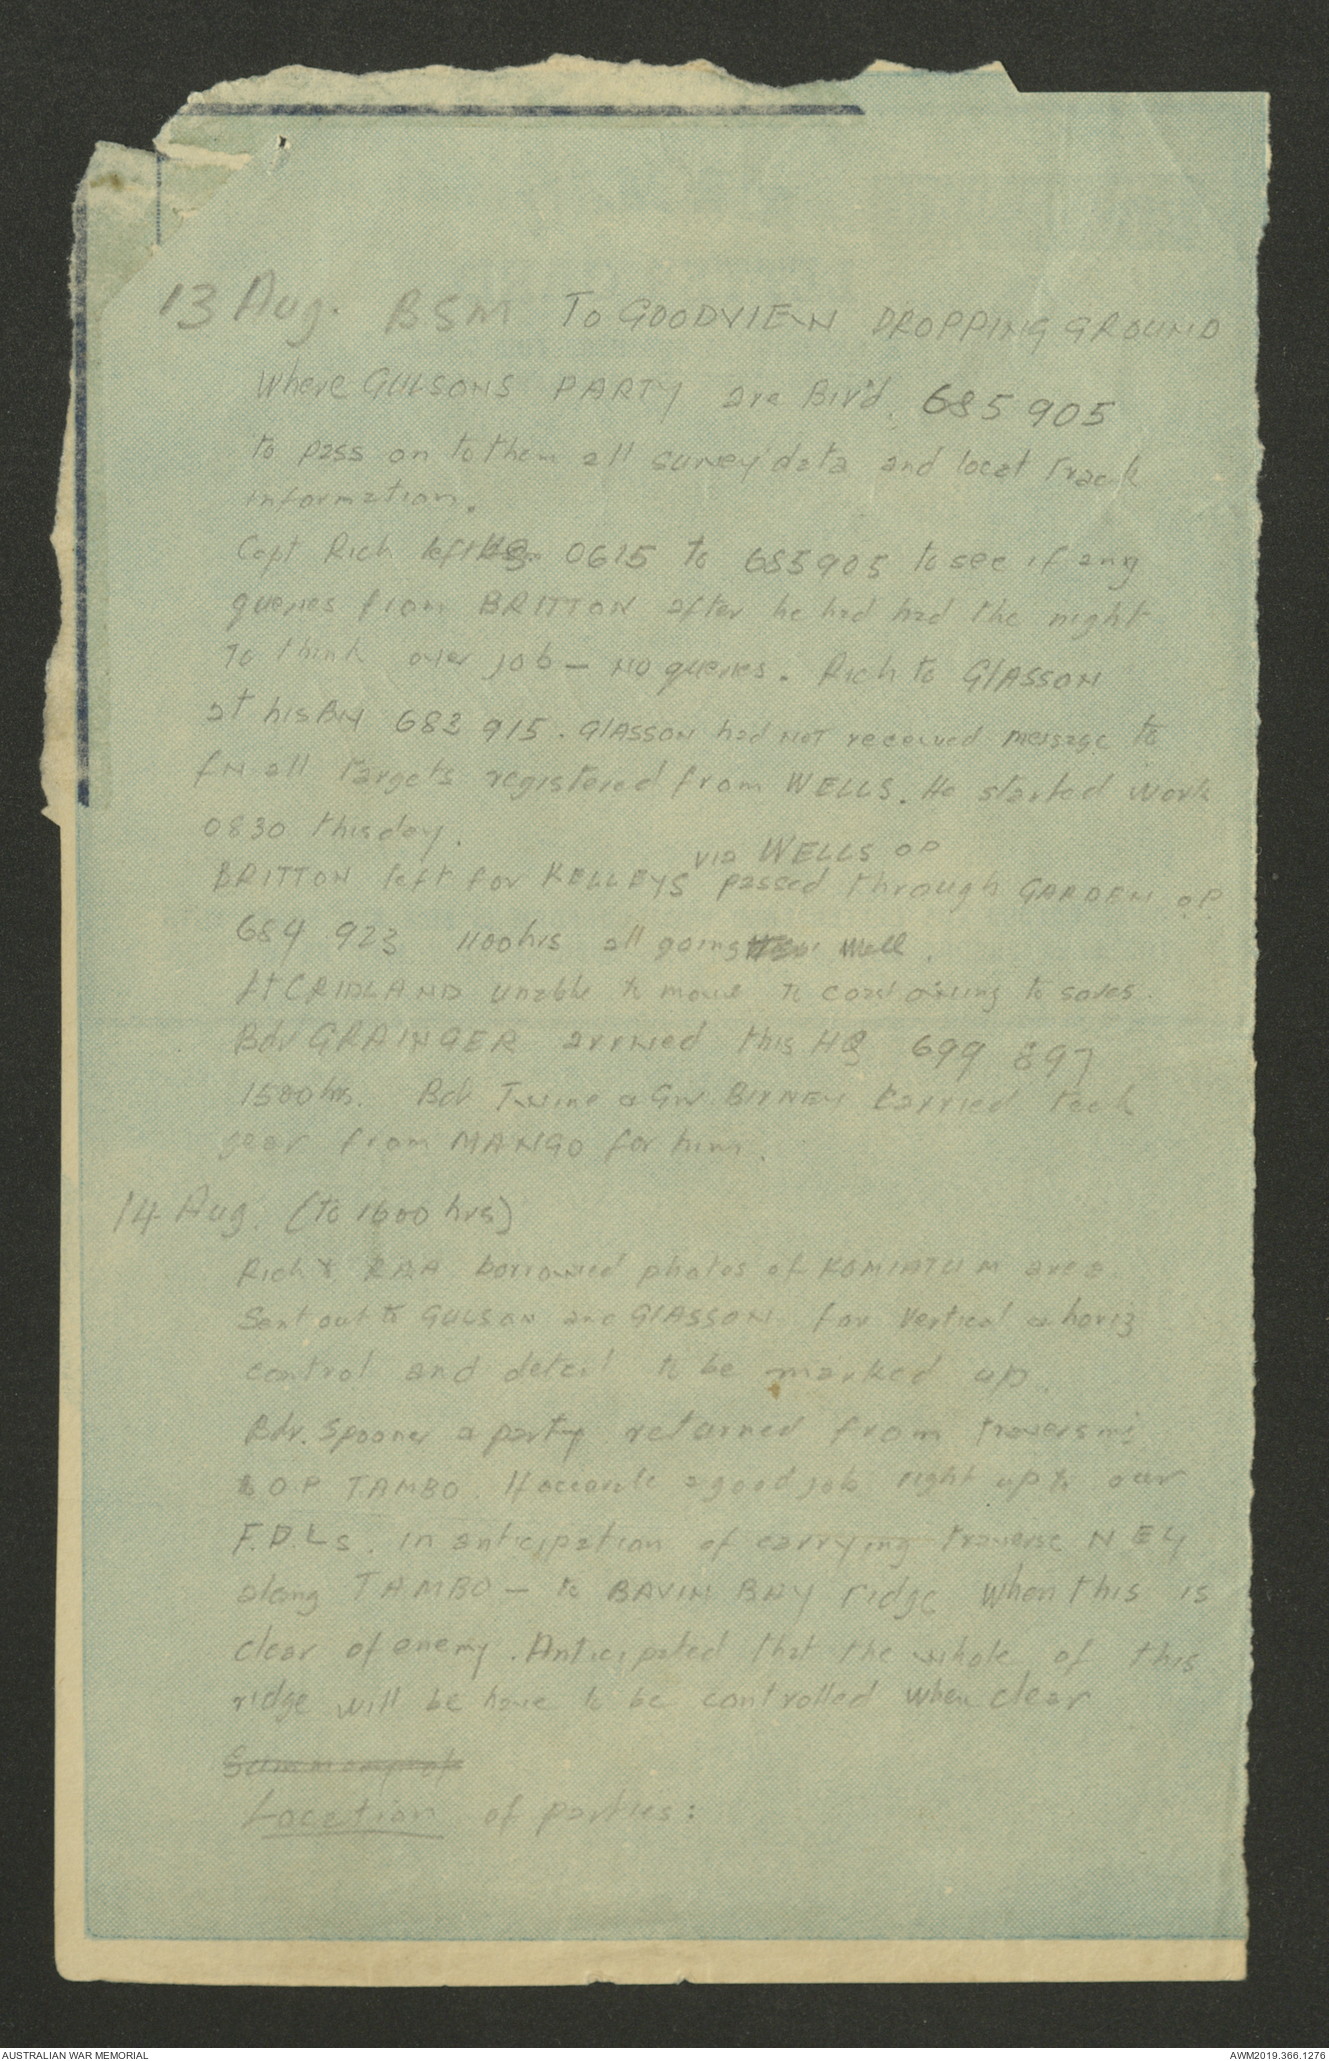 13 Aug. BSM TO GOODVIEW DROPPING GROUND
where GULSONS PARTY are Biv'd. 685 905
to pass on to them all survey data and local Track
information.
Capt Rich left HQ. 0615 to 685905 to see if any
queries from BRITTON after he had had the night
To think over job - NO queries. Rich to GLASSON
at his BN 683 915. GLASSON had NOT received message to
fix all targets registered from WELLS. He started work
0830 this day.
via WELLS OP
BRITTON left for KELLEYS passed through GARDEN O.P.
684 923 1100hrs all going well.
Lt CRIDLAND unable to move to coast owing to sores.
Bdr GRAINGER arrived this HQ 699 897
1500hrs. Bdr Twine & Gnr. BIRNEY carried tech
gear from MANGO for him.
14 Aug. (to 1600 hrs)
Rich RAA borrowed photos of KOMIATUM area.
Sent out to GULSON and GLASSON for Vertical & horiz
control and detail to be marked up.
Bdr. Spooner & party returned from traversing
O.P TAMBO. If accurate a good job right up to our
F.D.Ls. in anticipation of carrying traverse N ELY
along TAMBO - to BAVIN BAY ridge when this is
clear of enemy. Anticipated that the whole of this
ridge will be have to be controlled when clear
Summary of
Location of parties:
AUSTRALIAN WAR MEMORIAL
AWM2019.366.1276